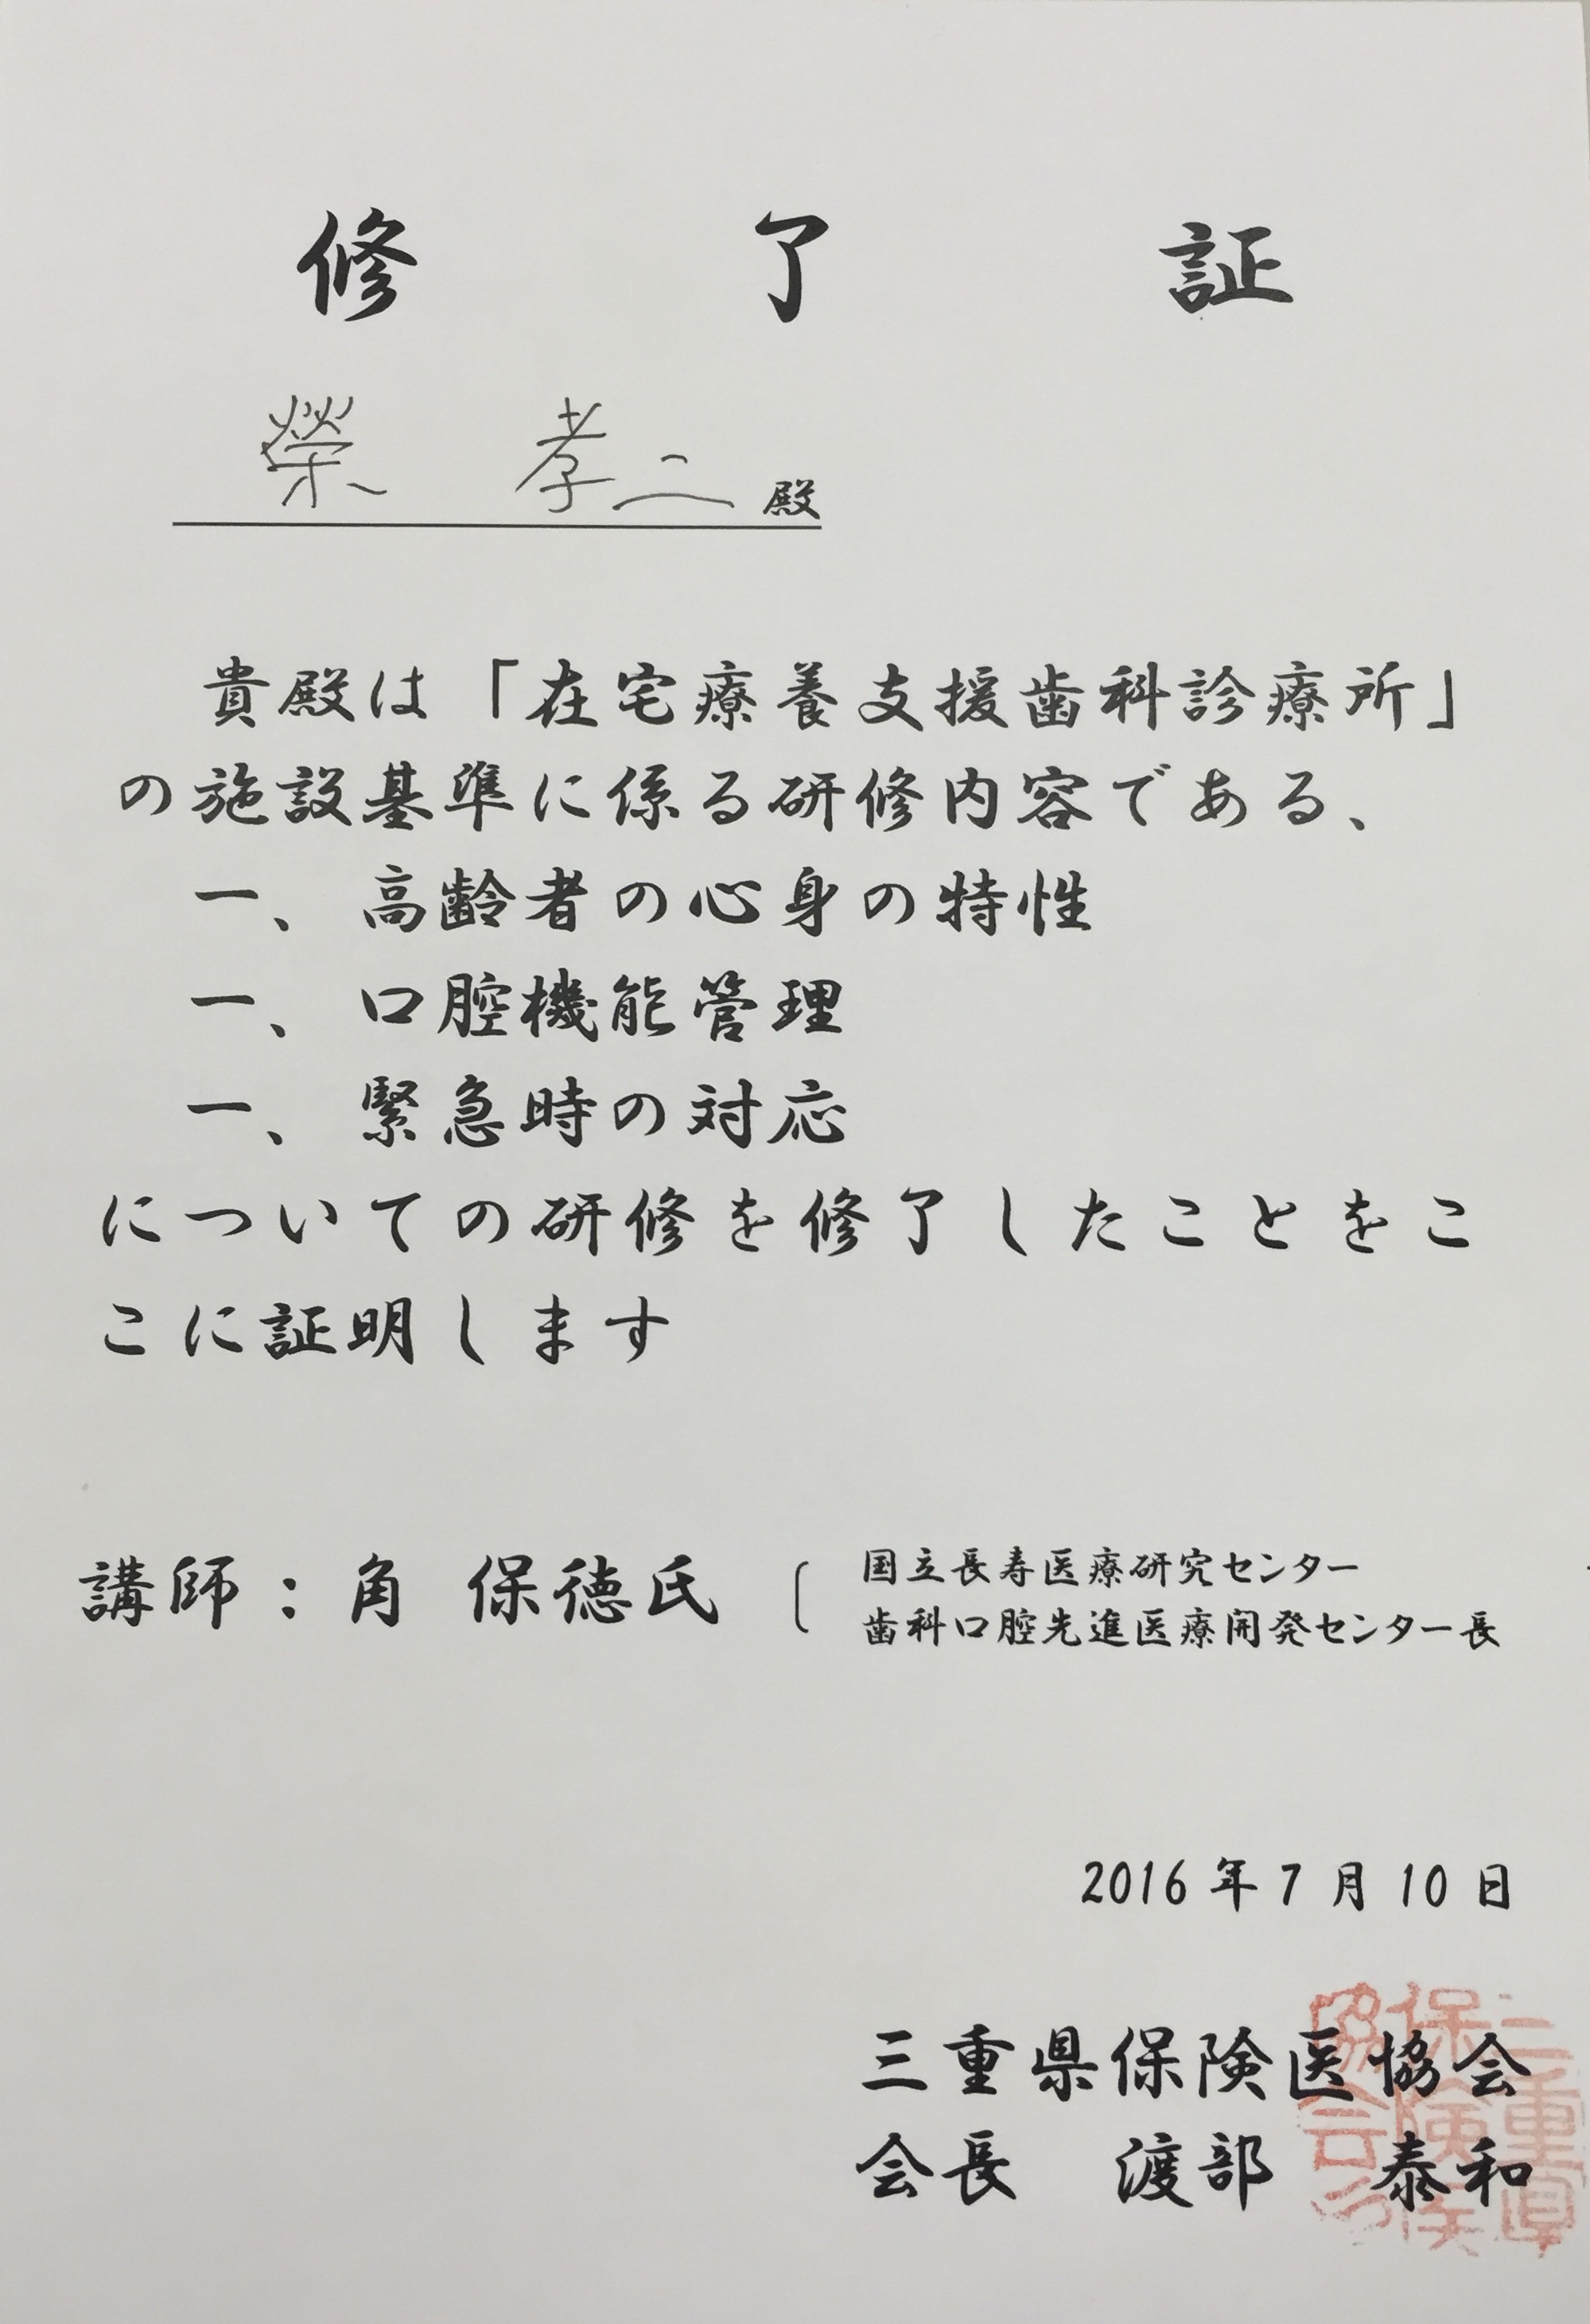 修了証
榮 孝二殿
貴殿は「在宅療養支援歯科診療所」
の施設基準に係る研修内容である、
一、高齢者の心身の特性
一、口腔機能管理
一、緊急時の対応
についての研修を修了したことをこ
こに証明します
講師：角 保徳氏
国立長寿医療研究センター
歯科口腔先進医療開発センター長
2016年7月10日
三重県保険医協会
会長 渡部 泰和